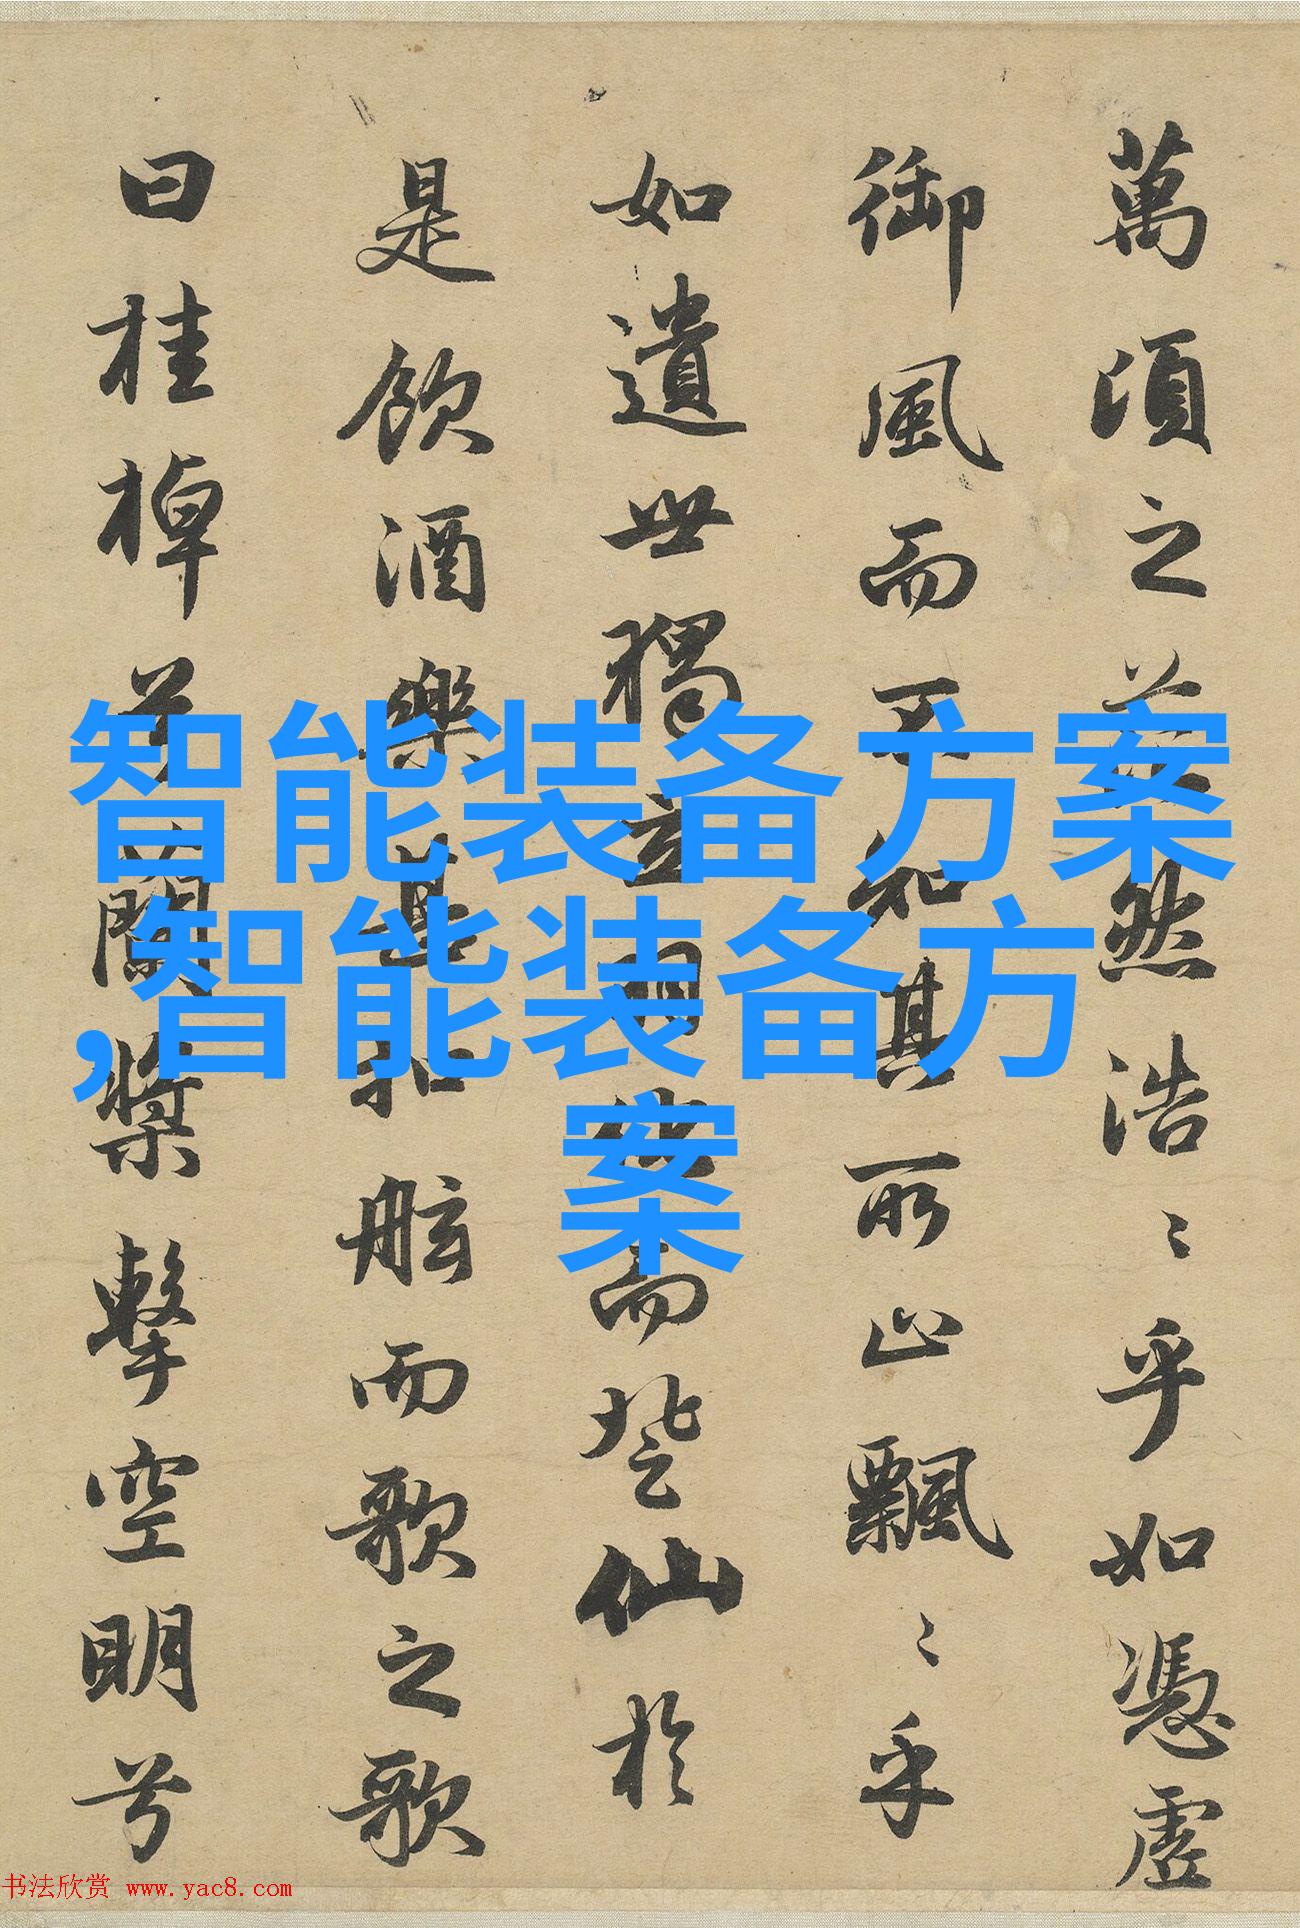 萬頃之茫然浩〻乎如憑虛
御風而不知其所止飄〻乎
如遺世獨立羽化而登仙於
是飲酒樂甚扣舷而歌之歌
曰桂棹兮蘭槳擊空明兮
智能装备方案
,智能装备方
案
书法欣赏 www.yac8.com